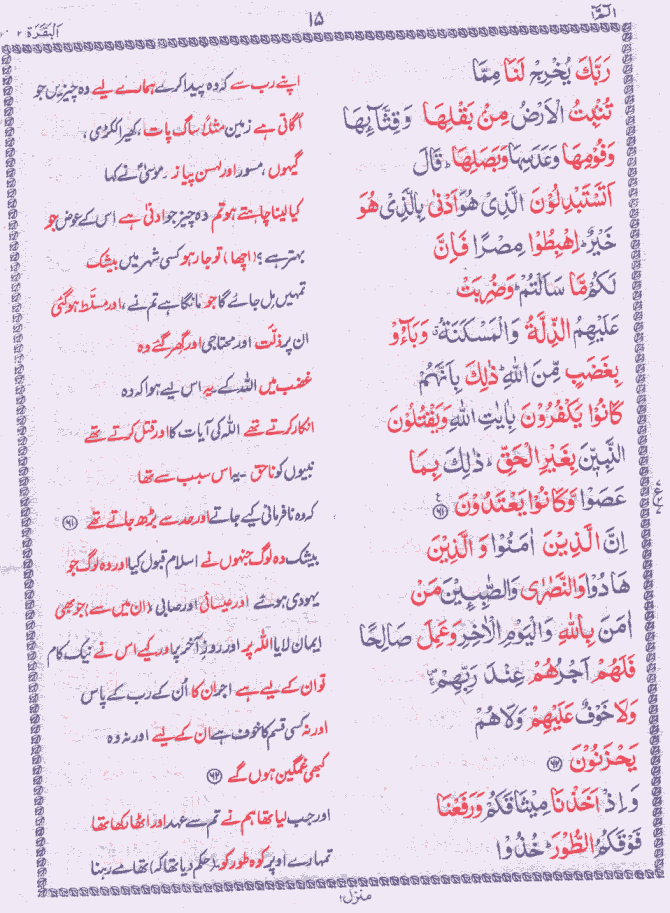 الٓمّٓ ١
١٥
اَلْبَقَرَة ٢
رَبَّكَ يُخْرِجْ لَنَا مِمَّا
اپنے رب سے کہ وہ پیدا کرے ہمارے لیے وہ چیزیں جو
تُنْۢبِتُ الْاَرْضُ مِنْۢ بَقْلِهَا وَقِثَّآئِهَا
اُگاتی ہے زمین مثلاً ساگ پات، کھیرا ککڑی،
وَفُوْمِهَا وَعَدَسِهَا وَبَصَلِهَا ؕ قَالَ
گیہوں، مسور اور لہسن پیاز۔ موسیٰؑ نے کہا
اَتَسْتَبْدِلُوْنَ الَّذِىْ هُوَ اَدْنٰى بِالَّذِىْ هُوَ
کیا لینا چاہتے ہو تم وہ چیز جو ادنیٰ ہے اس کے عوض جو
خَيْرٌ ؕ اِهْبِطُوْا مِصْرًا فَاِنَّ
بہتر ہے؟ (اچھا) تو جا رہو کسی شہر میں بیشک
لَكُمْ مَّا سَاَلْتُمْ ؕ وَضُرِبَتْ
تمہیں مل جائے گا جو مانگا ہے تم نے، اور مسلّط ہو گئی
عَلَيْهِمُ الذِّلَّةُ وَالْمَسْكَنَةُ ۗ وَبَآءُوْ
ان پر ذلّت اور محتاجی اور گھر گئے وہ
بِغَضَبٍ مِّنَ اللّٰهِ ؕ ذٰلِكَ بِاَنَّهُمْ
غضب میں اللہ کے یہ اس لیے ہوا کہ وہ
كَانُوْا يَكْفُرُوْنَ بِاٰيٰتِ اللّٰهِ وَيَقْتُلُوْنَ
انکار کرتے تھے اللہ کی آیات کا اور قتل کرتے تھے
النَّبِيّٖنَ بِغَيْرِ الْحَقِّ ؕ ذٰلِكَ بِمَا
نبیوں کو ناحق۔ یہ اس سبب سے تھا
عَصَوْا وَّكَانُوْا يَعْتَدُوْنَ ﴿٦١﴾
کہ وہ نافرمانی کیے جاتے اور حد سے بڑھ جاتے تھے ﴿٦١﴾
اِنَّ الَّذِيْنَ اٰمَنُوْا وَ الَّذِيْنَ
بیشک وہ لوگ جنہوں نے اسلام قبول کیا اور وہ لوگ جو
هَادُوْا وَالنَّصٰرٰى وَالصّٰبِـِٕيْنَ مَنْ
یہودی ہوئے اور عیسائی اور صابی (ان میں سے) جو بھی
اٰمَنَ بِاللّٰهِ وَالْيَوْمِ الْاٰخِرِ وَعَمِلَ صَالِحًا
ایمان لایا اللہ پر اور روزِ آخر پر اور کیے اس نے نیک کام
فَلَهُمْ اَجْرُهُمْ عِنْدَ رَبِّهِمْ ۚ
تو ان کے لیے ہے اجر ان کا اُن کے رب کے پاس
وَلَا خَوْفٌ عَلَيْهِمْ وَلَا هُمْ
اور نہ کسی قسم کا خوف ہے ان کے لیے اور نہ وہ
يَحْزَنُوْنَ ﴿٦٢﴾
کبھی غمگین ہوں گے ﴿٦٢﴾
وَاِذْ اَخَذْنَا مِيْثَاقَكُمْ وَرَفَعْنَا
اور جب لیا تھا ہم نے تم سے عہد اور اٹھا رکھا تھا
فَوْقَكُمُ الطُّوْرَ ؕ خُذُوْا
تمہارے اوپر کوہِ طور کو۔ (حکم دیا تھا کہ) تھامے رہنا
منزل ١